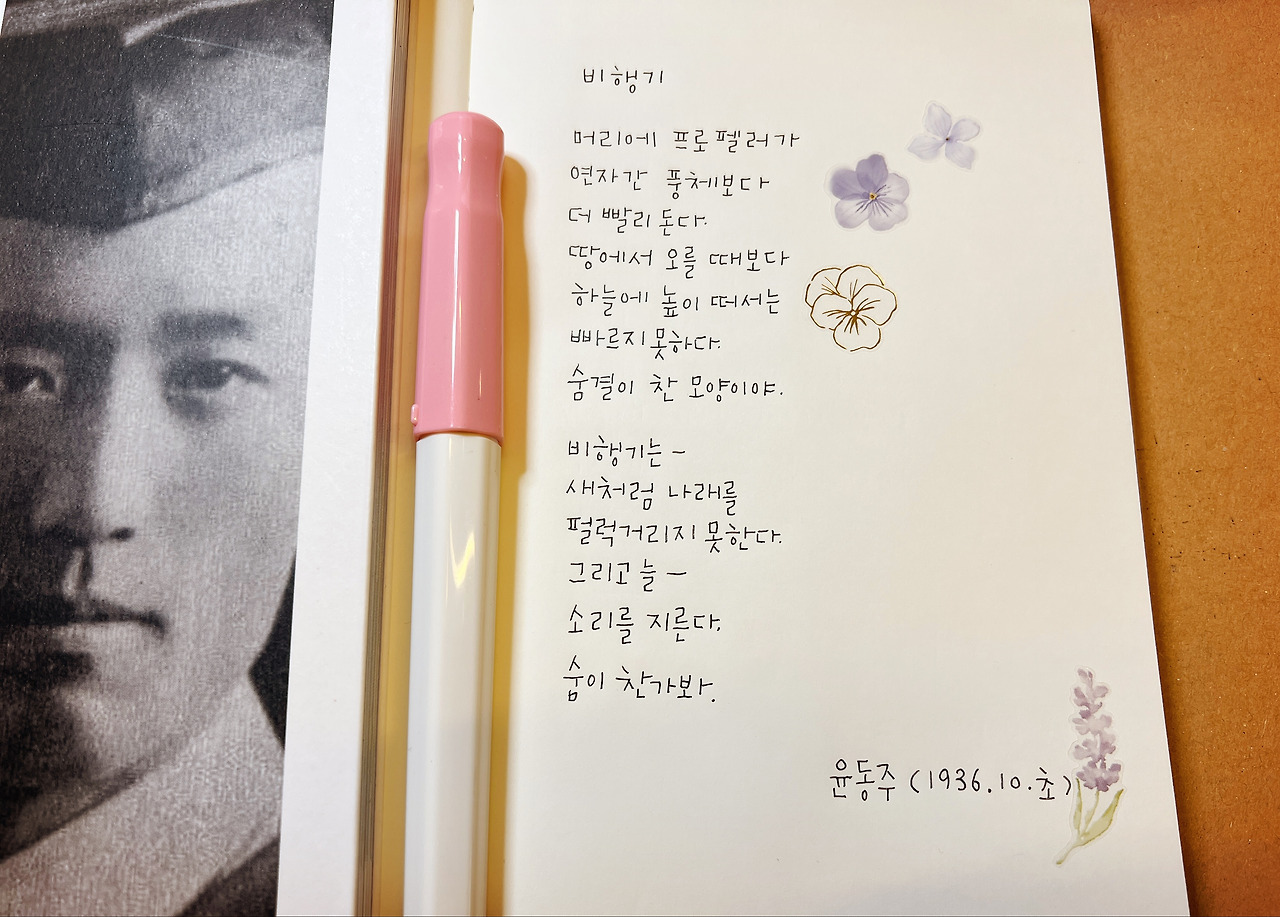 비행기
머리에 프로펠러가
연자간 풍체보다
더 빨리 돈다.
땅에서 오를 때보다
하늘에 높이 떠서는
빠르지 못하다.
숨결이 찬 모양이야.
비행기는 –
새처럼 나래를
펄럭거리지 못한다.
그리고 늘 –
소리를 지른다.
숨이 찬가봐.
윤동주 (1936.10.초)